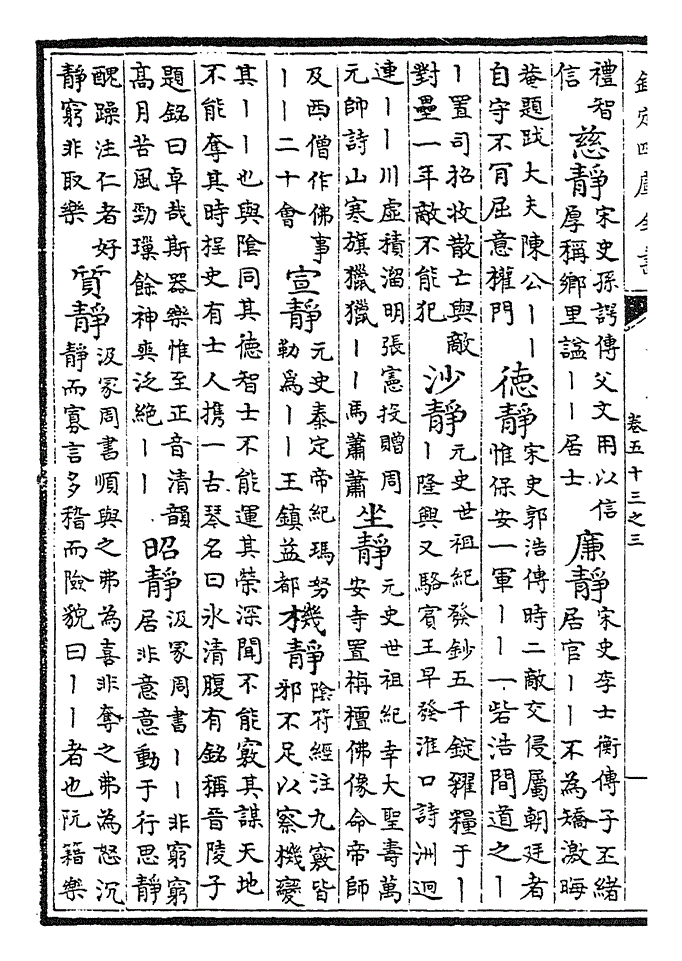 欽定四庫全書
卷五十三之三
禮智信 慈靜 宋史孫諤傳父文用以信厚稱鄉里諡丨丨居士 廉靜 宋史李士衡傳子丕緒居官丨丨不為矯激晦
菴題跋大夫陳公丨丨自守不肯屈意權門 德靜 宋史郭浩傳時二敵交侵屬朝廷者惟保安一軍丨丨一砦浩間道之丨
丨置司招收散亡與敵對壘一年敵不能犯 沙靜 元史世祖紀發鈔五千錠糴糧于丨丨隆興又駱賓王早發淮口詩洲迥
連丨丨川虛積溜明張憲投贈周元帥詩山寒旗獵獵丨丨馬蕭蕭 坐靜 元史世祖紀幸大聖壽萬安寺置栴檀佛像命帝師
及西僧作佛事丨丨二十會 宣靜 元史泰定帝紀瑪努勒為丨丨王鎮益都 機靜 陰符經注九竅皆邪不足以察機變
其丨丨也與陰同其德智士不能運其榮深聞不能竅其謀天地不能奪其時桯史有士人携一古琴名曰氷清腹有銘稱晉陵子
題銘曰卓哉斯器樂惟至正音清韻高月苦風勁璅餘神爽泛絕丨丨 昭靜 汲冢周書丨丨非窮窮居非意意動于行思靜
醜躁注仁者好靜窮非取樂 質靜 汲冢周書順與之弗為喜非奪之弗為怒沉靜而寡言多稽而險貌曰丨丨者也阮籍樂